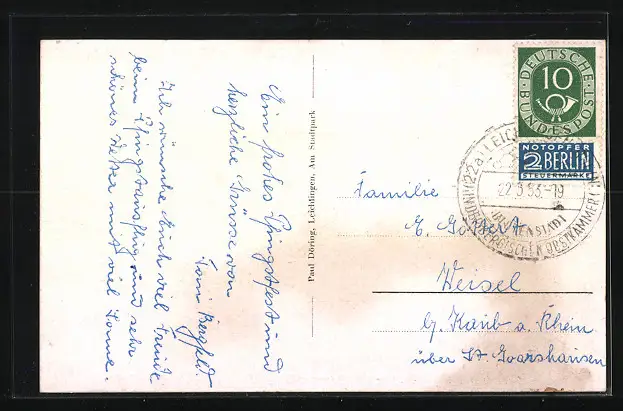 Ein frohes Pfingstfest und
herzliche Grüsse von
Fam. Bergfeld
Ich wünsche Euch viel Freude
beim Pfingstausflug und sehr
schönes Wetter mit viel Sonne.
Paul Döring, Leichlingen, Am Stadtpark
DEUTSCHE BUNDESPOST
10
NOTOPFER
2 BERLIN
STEUERMARKE
(22a) LEICHLINGEN
22.5.53.-19
BLÜTENSTADT
BERGISCHEN OBSTKAMMER
Familie
E. Gossert
Weisel
b/ Kaub a. Rhein
über St Goarshausen